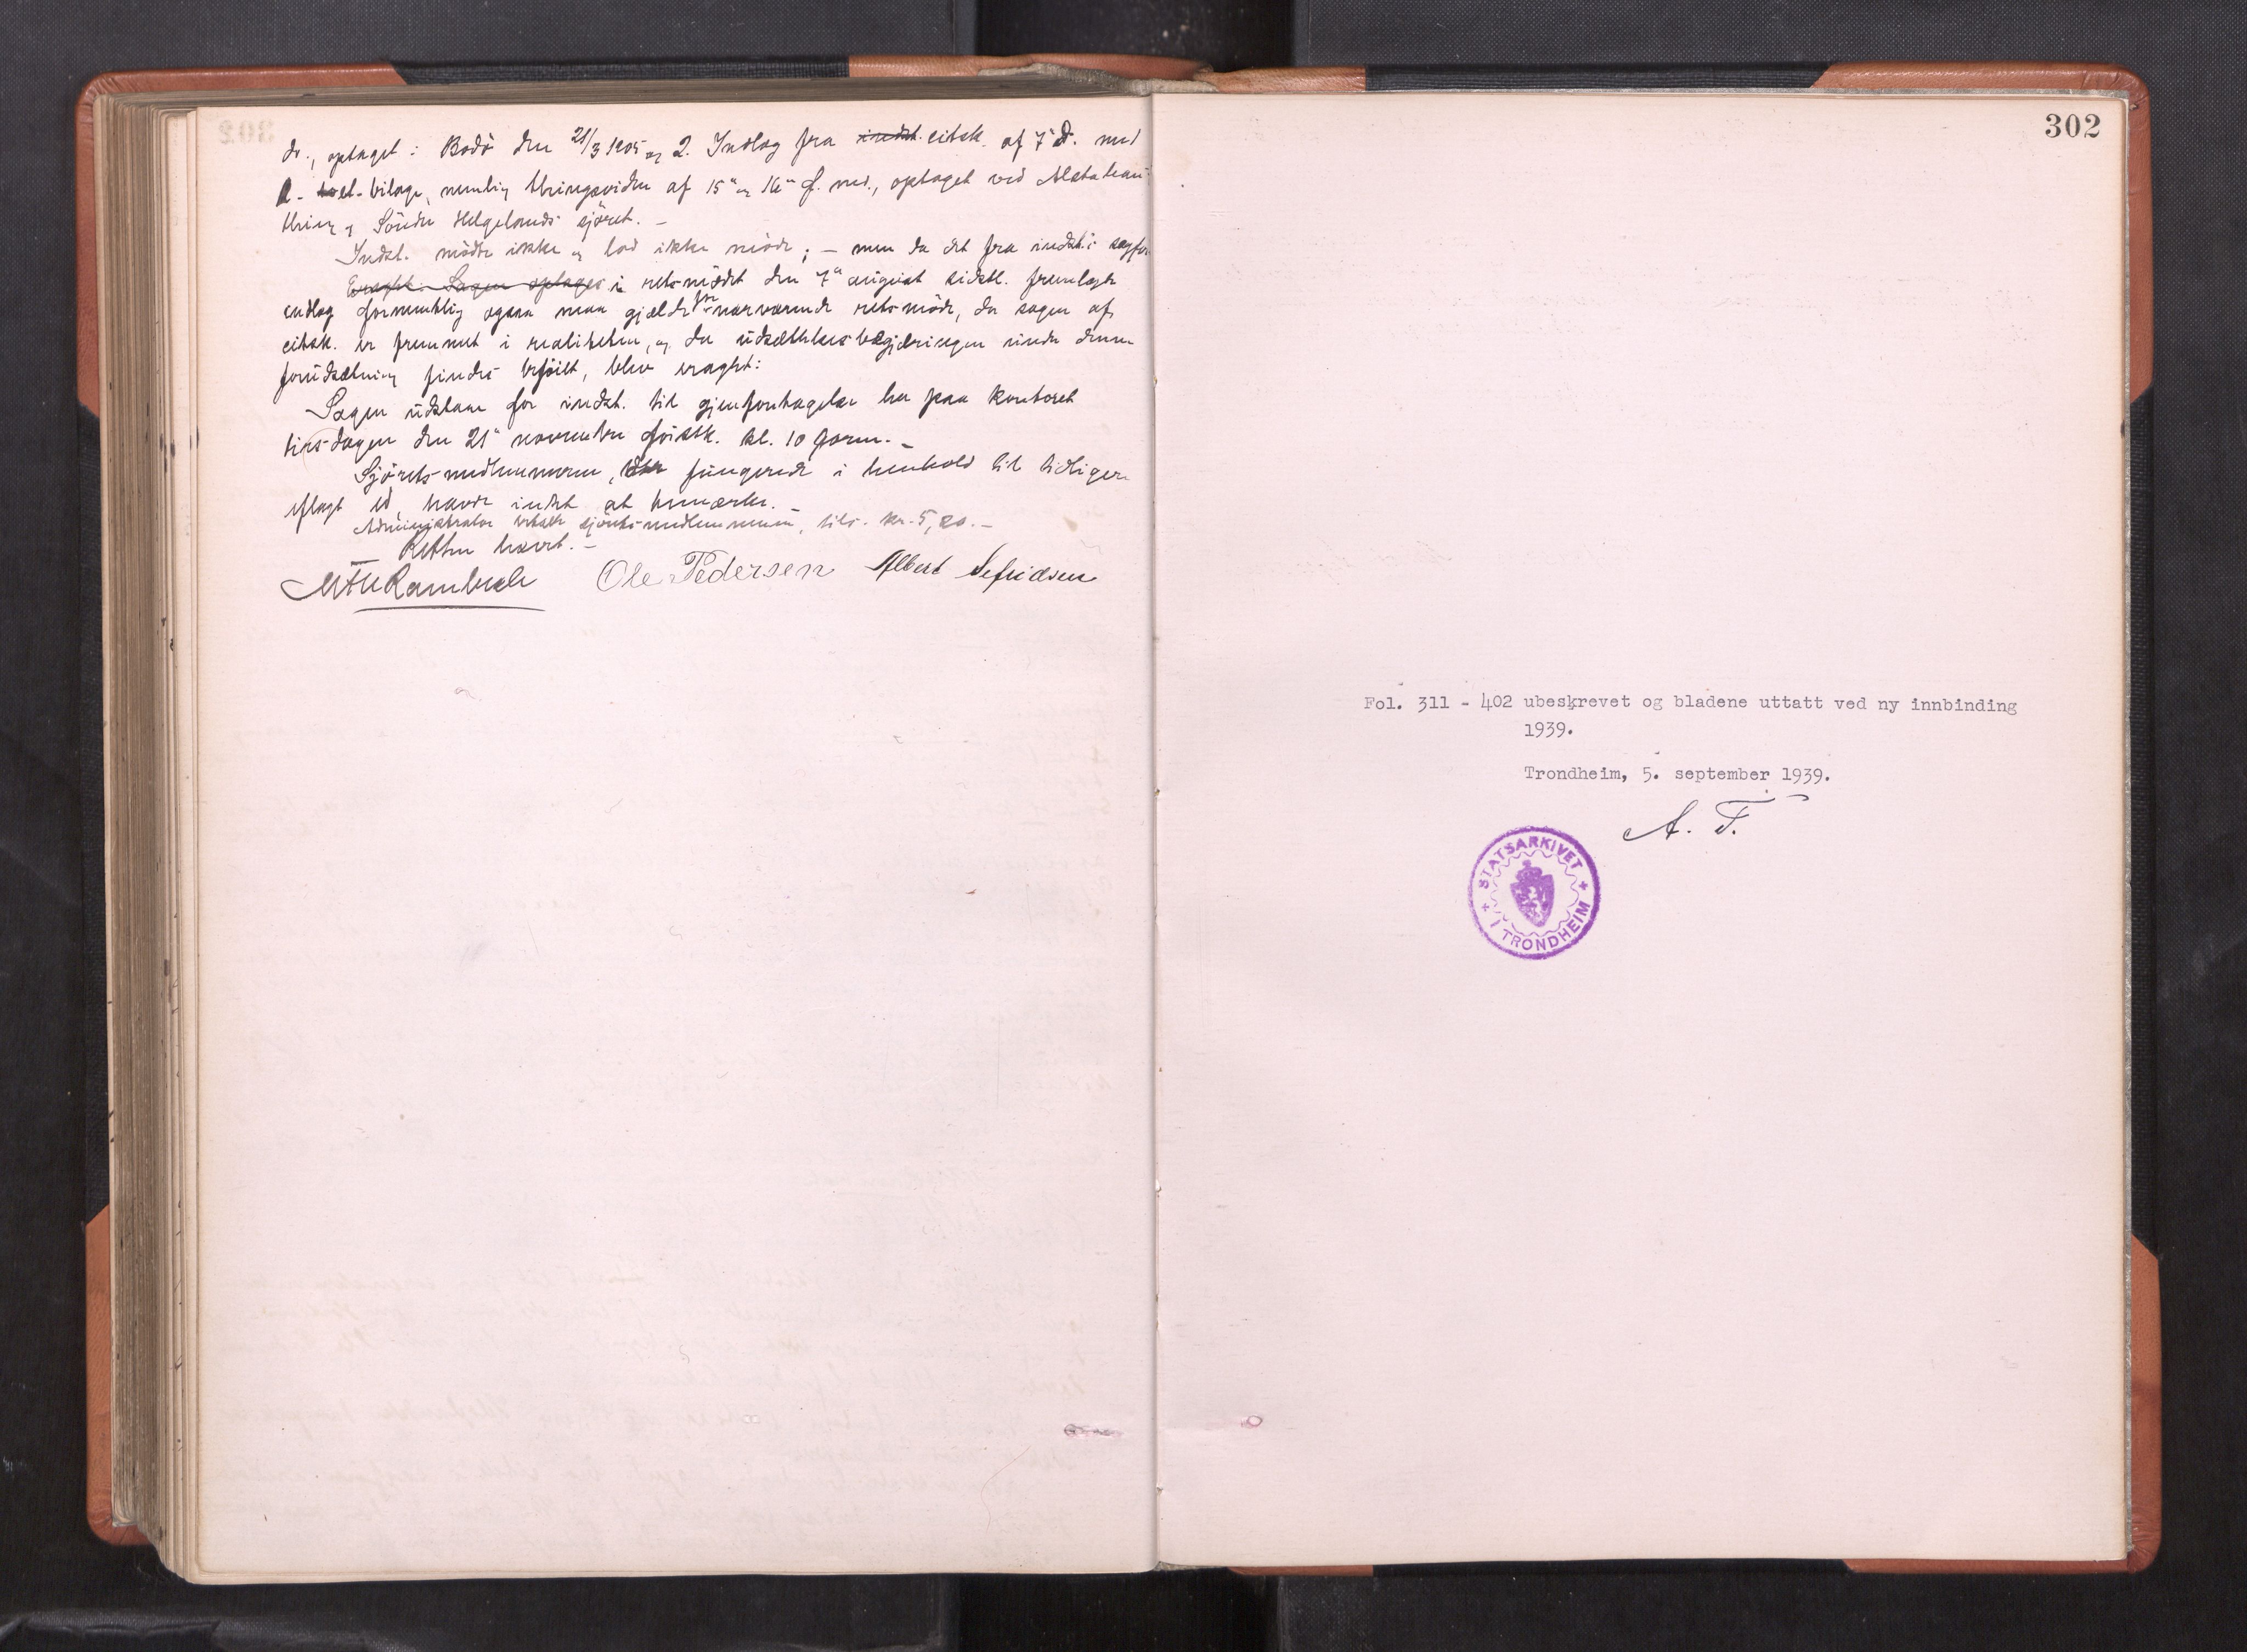 dr., optaget i Bodö den 21/3 1905 og 2. Indlæg fra indst. citsk. af 7" d. med
bilage, nemlig thingsvidne af 15" og 16" f. md., optaget ved Alstahaug
thing og Söndre Helgelands sjöret. –
Indst. mödte ikke og lod ikke möde; – men da det fra indst.'s sagf.
Eragtet. Sagen optages i retsmödet den 7" august sidstl. fremlagte
indlæg formentlig ogsaa maa gjælde for nærværende retsmöde, da sagen af
citsk. er fremmet i realiteten, og da udsættelsesbegjæringen under denne
forudsætning findes beföiet, blev eragtet:
Sagen udstaar for indst. til gjenforetagelse her paa kontoret
tirsdagen den 21" november förstk. kl. 10 form. –
Sjöretsmedlemmerne, fungerende i henhold til tidligere
aflagt ed, havde intet at bemærke. –
Administrator betalte sjöretsmedlemmerne, tils. kr. 5,20. –
Retten hævet. –
Ole Pedersen Albert
302
Fol. 311 - 402 ubeskrevet og bladene uttatt ved ny innbinding
1939.
Trondheim, 5. september 1939.
A. T.
STATSARKIVET I TRONDHEIM